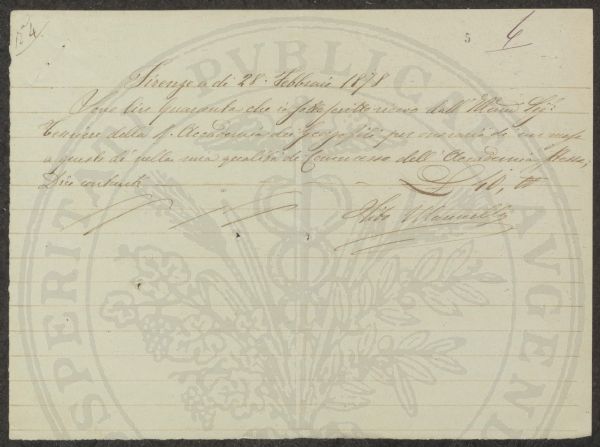 N° 4
5
6
Firenze a di 28. Febbraio 1878
Sono lire quaranta che io sottoscritto ricevo dall' Illmo Sig:
Tesoriere della R. Accademia dei Georgofili per onorario di un mese
a questo dì nella mia qualità di Commesso dell' Accademia stessa;
Dico contanti L 40, "
PROSPERITATI PUBLICAE AUGENDAE